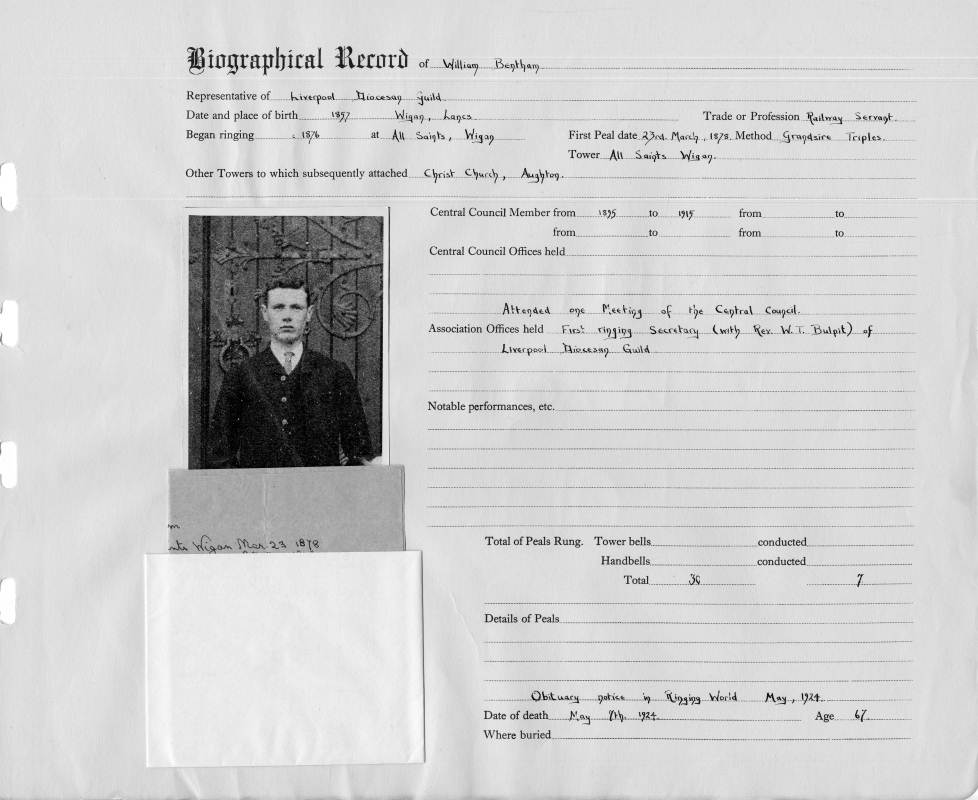 Biographical Record of William Bentham
Representative of Liverpool Diocesan Guild
Date and place of birth 1857 Wigan, Lancs. Trade or Profession Railway Servant.
Began ringing c 1876 at All Saints, Wigan First Peal date 23rd. March, 1878. Method Grandsire Triples.
Tower All Saints Wigan.
Other Towers to which subsequently attached Christ Church, Aughton.
Central Council Member from 1895 to 1915 from to
from to from to
Central Council Offices held
Attended one Meeting of the Central Council.
Association Offices held First ringing Secretary (with Rev. W. T. Bulpit) of
Liverpool Diocesan Guild
Notable performances, etc.
Wigan Mar. 23 1878
Total of Peals Rung. Tower bells conducted
Handbells conducted
Total 7
Details of Peals
Obituary notice in Ringing World May, 1924.
Date of death May 1924. Age 67.
Where buried